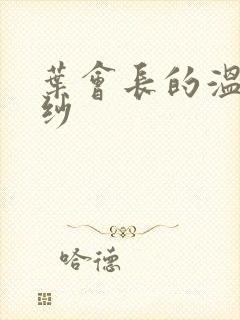 葉會長的溫
紗
哈德